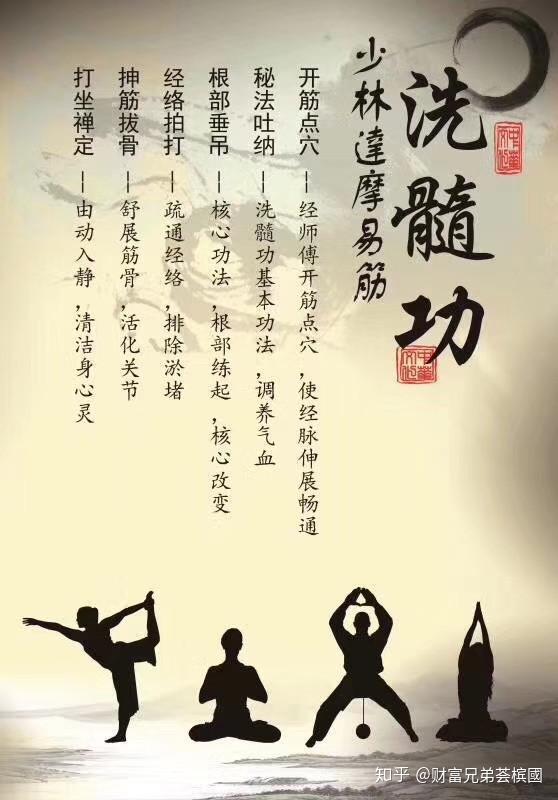 洗髓功
少林達摩易筋
开筋点穴—经师傅开筋点穴,使经脉伸展畅通
秘法吐纳—洗髓功基本功法,调养气血
根部垂吊—核心功法,根部练起,核心改变
经络拍打—疏通经络,排除淤堵
抻筋拔骨—舒展筋骨,活化关节
打坐禅定—由动入静,清洁身心灵
知乎 @财富兄弟荟槟國